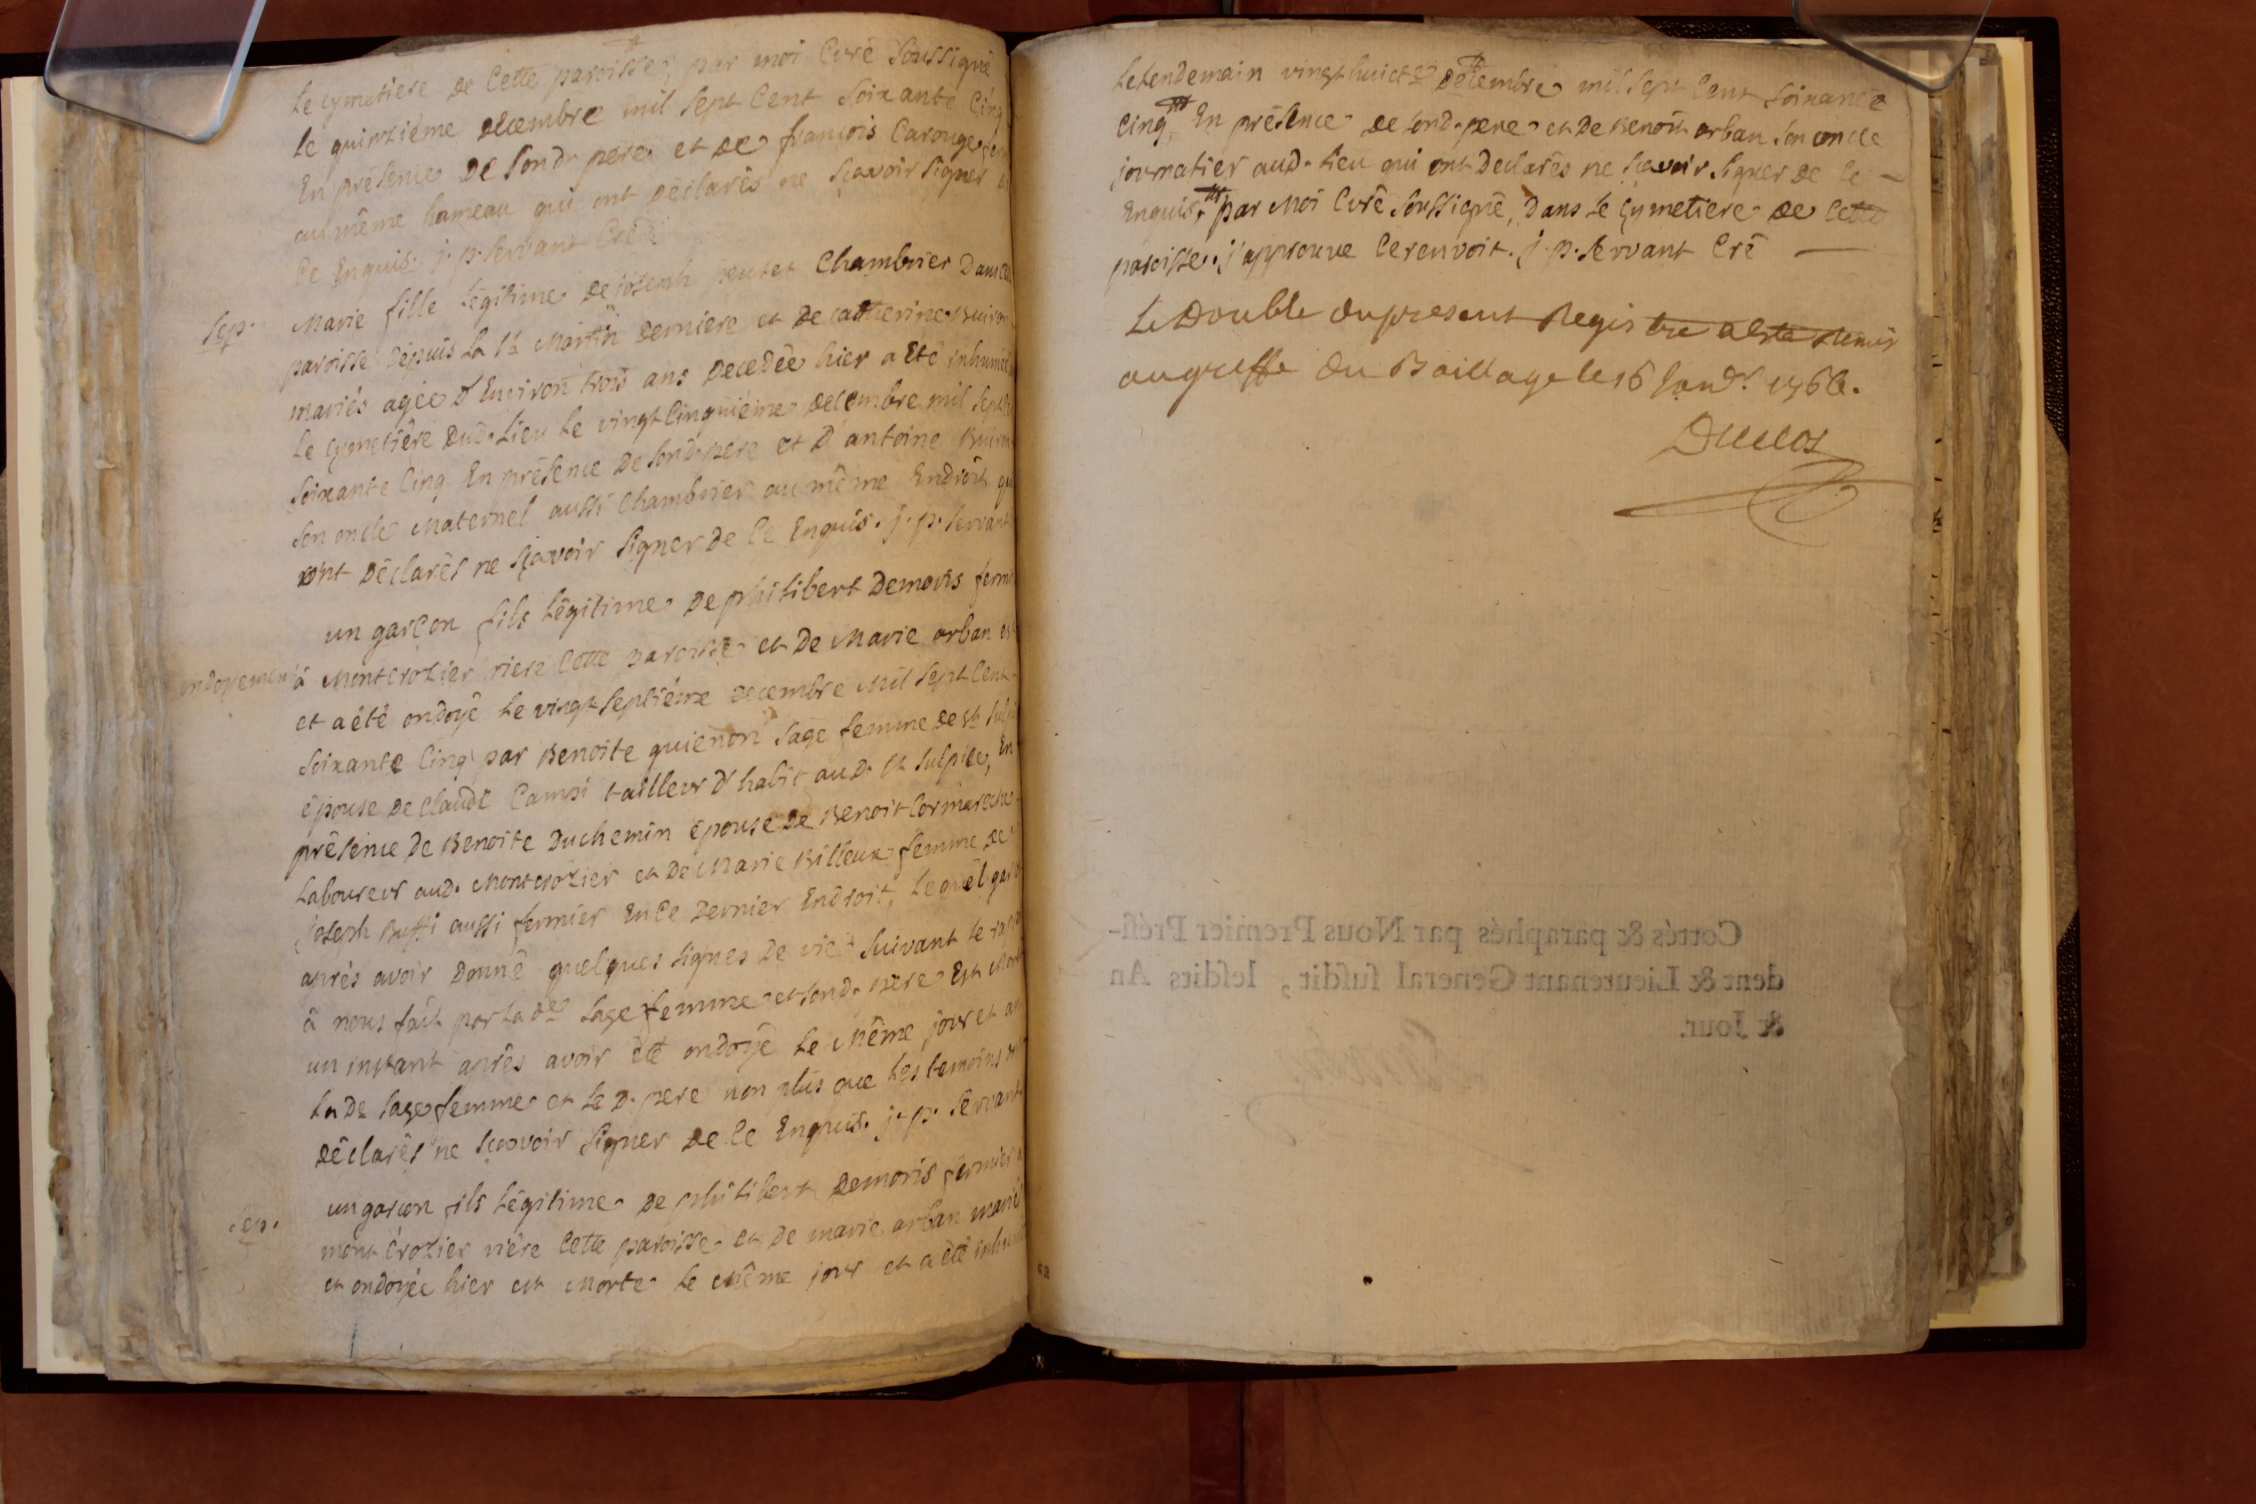 le cymetiere de Cette paroisse, par moi Curé Soussigné
le quinziéme decembre mil sept Cent soixante Cinq
En présence de sond. pere et de francois Carouge
au même hameau qui ont déclarés ne sçavoir signer
de Ce Enquis. j. p. servant Cré
sep.
Marie fille légitime de joseph Chambrier Dans
paroisse depuis la st Martin derniere et de catherine
mariés agée d'Environ trois ans decedée hier a Eté inhumée
le cymetière dud. lieu le vingt Cinquiéme decembre mil sept
soixante Cinq En présence de sond. pere et d'antoine
son oncle Maternel aussi Chambrier au même Endroit qui
ont déclarés ne sçavoir signer de Ce Enquis. j. p. servant
un garçon fils légitime de philibert Demoris
ondoyement
à Montcrozier riere Cette paroisse et de Marie orban
et a été ondoyé le vingt septiéme decembre Mil sept Cent
soixante Cinq par Benoite quienon sage femme de st
épouse de claude Campi tailleur d'habit aud. st sulpice, En
présence de Benoite Duchemin épouse de Benoit
laboureur aud. Montcrozier et de Marie Billeux femme de
joseph Buffi aussi fermier En Ce dernier Endroit, lequel
aprés avoir donné quelques signes de vie suivant le
à nous fait par la de sage femme et sond. pere Est
un instant aprés avoir été ondoyé le même jour et
la de sage femme et le d. pere non plus que les temoins
déclarés ne sçavoir signer de Ce Enquis. j. p. servant
sep.
un garçon fils légitime de philibert Demoris fermier
mont Crozier riére Cette paroisse et de marie orban mariés
et ondoyée hier est Morte le même jour et a été
le lendemain vingt huict decembre mil sept Cent soixante
Cinq, En présence de sond. pere et de Benoit orban son oncle
journalier aud. lieu qui ont declarés ne sçavoir signer de Ce
Enquis, par Moi Curé Soussigné, dans le cymetiere de Cette
paroisse. j'approuve le renvoit. j. p. servant Cré
Le Double du present Registre a esté Remis
au greffe du Baillage le 16 Janv. 1766.
Cottés & paraphés par Nous Premier Prési-
dent & Lieutenant General susdit, lesdits An
& Jour.